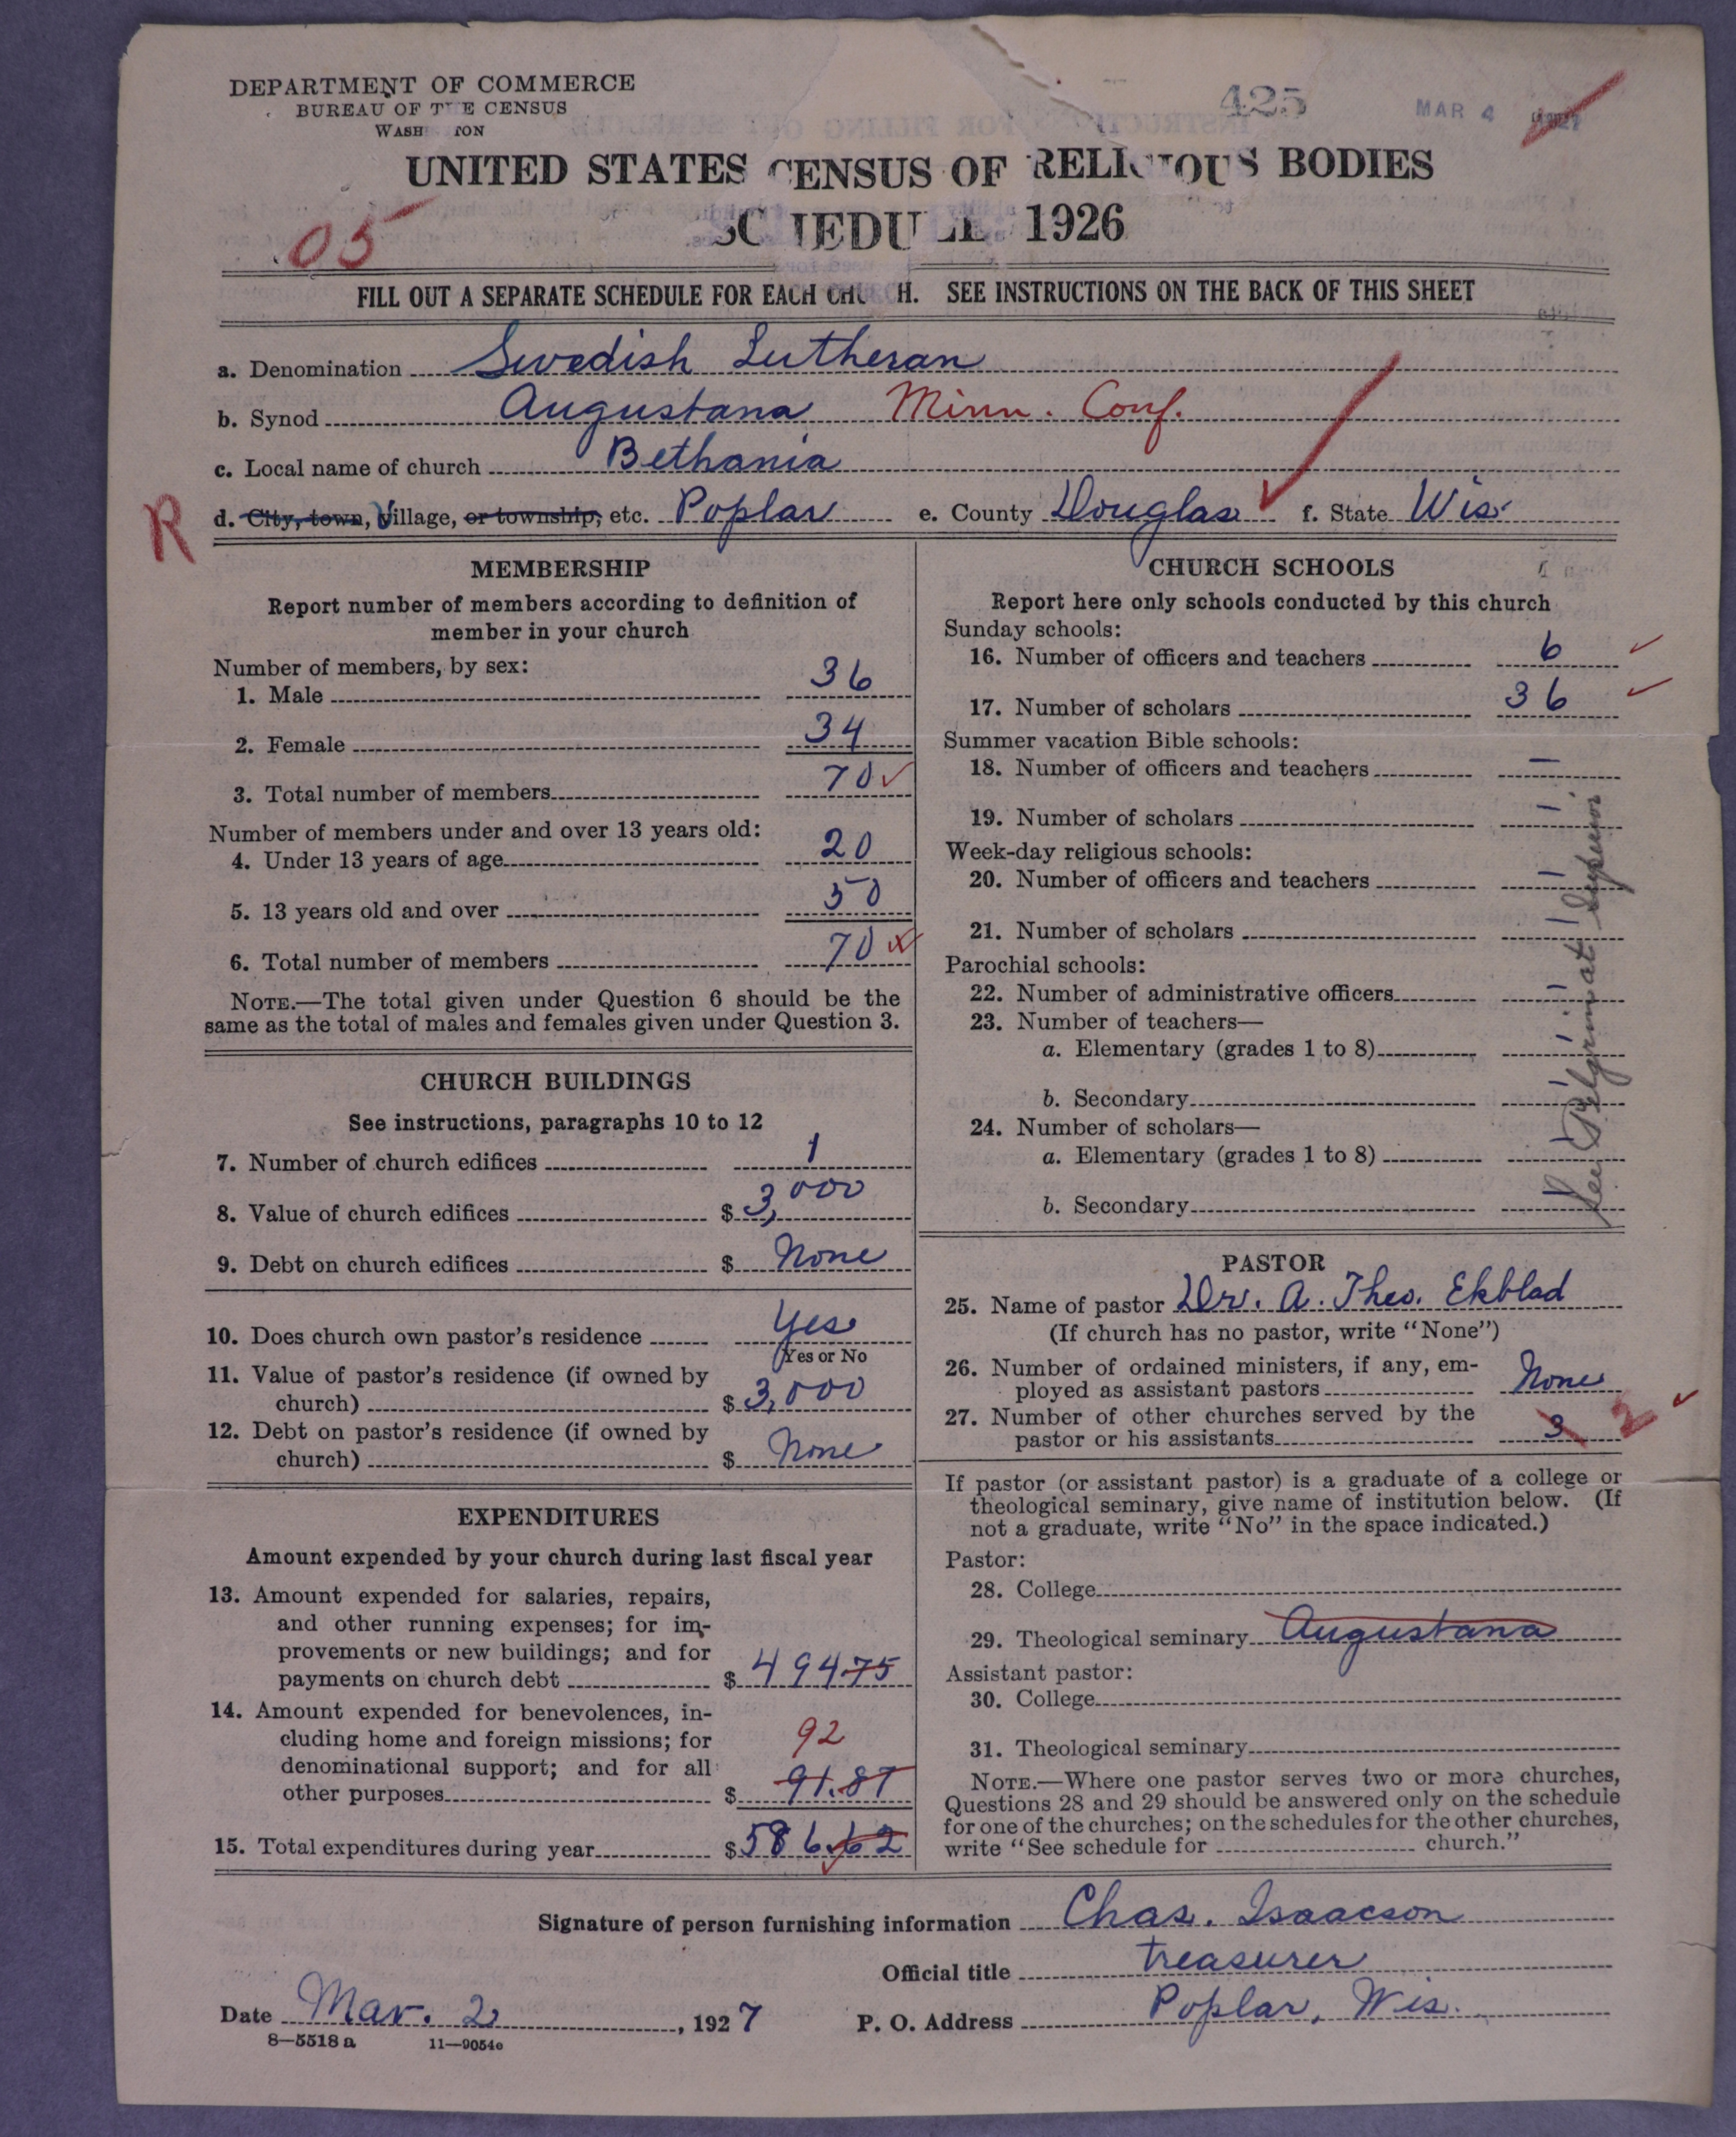 DEPARTMENT OF COMMERCE
BUREAU OF THE CENSUS
WASH TON
425
MAR 4 1927
UNITED STATES CENSUS OF RELIGIOUS BODIES
SCHEDULE 1926
05
FILL OUT A SEPARATE SCHEDULE FOR EACH CHU H. SEE INSTRUCTIONS ON THE BACK OF THIS SHEET
a. Denomination Swedish Lutheran
b. Synod Augustana Minn. Conf.
c. Local name of church Bethania
R
d. City, town, Village, or township, etc. Poplar e. County Douglas f. State Wis.
MEMBERSHIP
Report number of members according to definition of
member in your church
Number of members, by sex:
1. Male 36
2. Female 34
3. Total number of members 70
Number of members under and over 13 years old:
4. Under 13 years of age 20
5. 13 years old and over 50
6. Total number of members 70
NOTE.—The total given under Question 6 should be the
same as the total of males and females given under Question 3.
CHURCH BUILDINGS
See instructions, paragraphs 10 to 12
7. Number of church edifices 1
8. Value of church edifices $ 3,000
9. Debt on church edifices $ None
10. Does church own pastor's residence Yes
(Yes or No
11. Value of pastor's residence (if owned by
church) $ 3,000
12. Debt on pastor's residence (if owned by
church) $ None
EXPENDITURES
Amount expended by your church during last fiscal year
13. Amount expended for salaries, repairs,
and other running expenses; for im-
provements or new buildings; and for
payments on church debt $ 494 75
14. Amount expended for benevolences, in-
cluding home and foreign missions; for
denominational support; and for all
other purposes $ 91.87
92
15. Total expenditures during year $ 586.62
CHURCH SCHOOLS
Report here only schools conducted by this church
Sunday schools:
16. Number of officers and teachers 6
17. Number of scholars 36
Summer vacation Bible schools:
18. Number of officers and teachers —
19. Number of scholars —
Week-day religious schools:
20. Number of officers and teachers —
21. Number of scholars —
Parochial schools:
22. Number of administrative officers —
23. Number of teachers—
a. Elementary (grades 1 to 8) —
b. Secondary —
24. Number of scholars—
a. Elementary (grades 1 to 8) —
b. Secondary —
See Pilgrim at Superior
PASTOR
25. Name of pastor Dr. A. Theo. Ekblad
(If church has no pastor, write "None")
26. Number of ordained ministers, if any, em-
ployed as assistant pastors None
27. Number of other churches served by the
pastor or his assistants 3 2
If pastor (or assistant pastor) is a graduate of a college or
theological seminary, give name of institution below. (If
not a graduate, write "No" in the space indicated.)
Pastor:
28. College
29. Theological seminary Augustana
Assistant pastor:
30. College
31. Theological seminary
NOTE.—Where one pastor serves two or more churches,
Questions 28 and 29 should be answered only on the schedule
for one of the churches; on the schedules for the other churches,
write "See schedule for church."
Signature of person furnishing information Chas. Isaacson
Official title treasurer
Date Mar. 2, 1927 P. O. Address Poplar, Wis.
8—5518 a 11—9054e